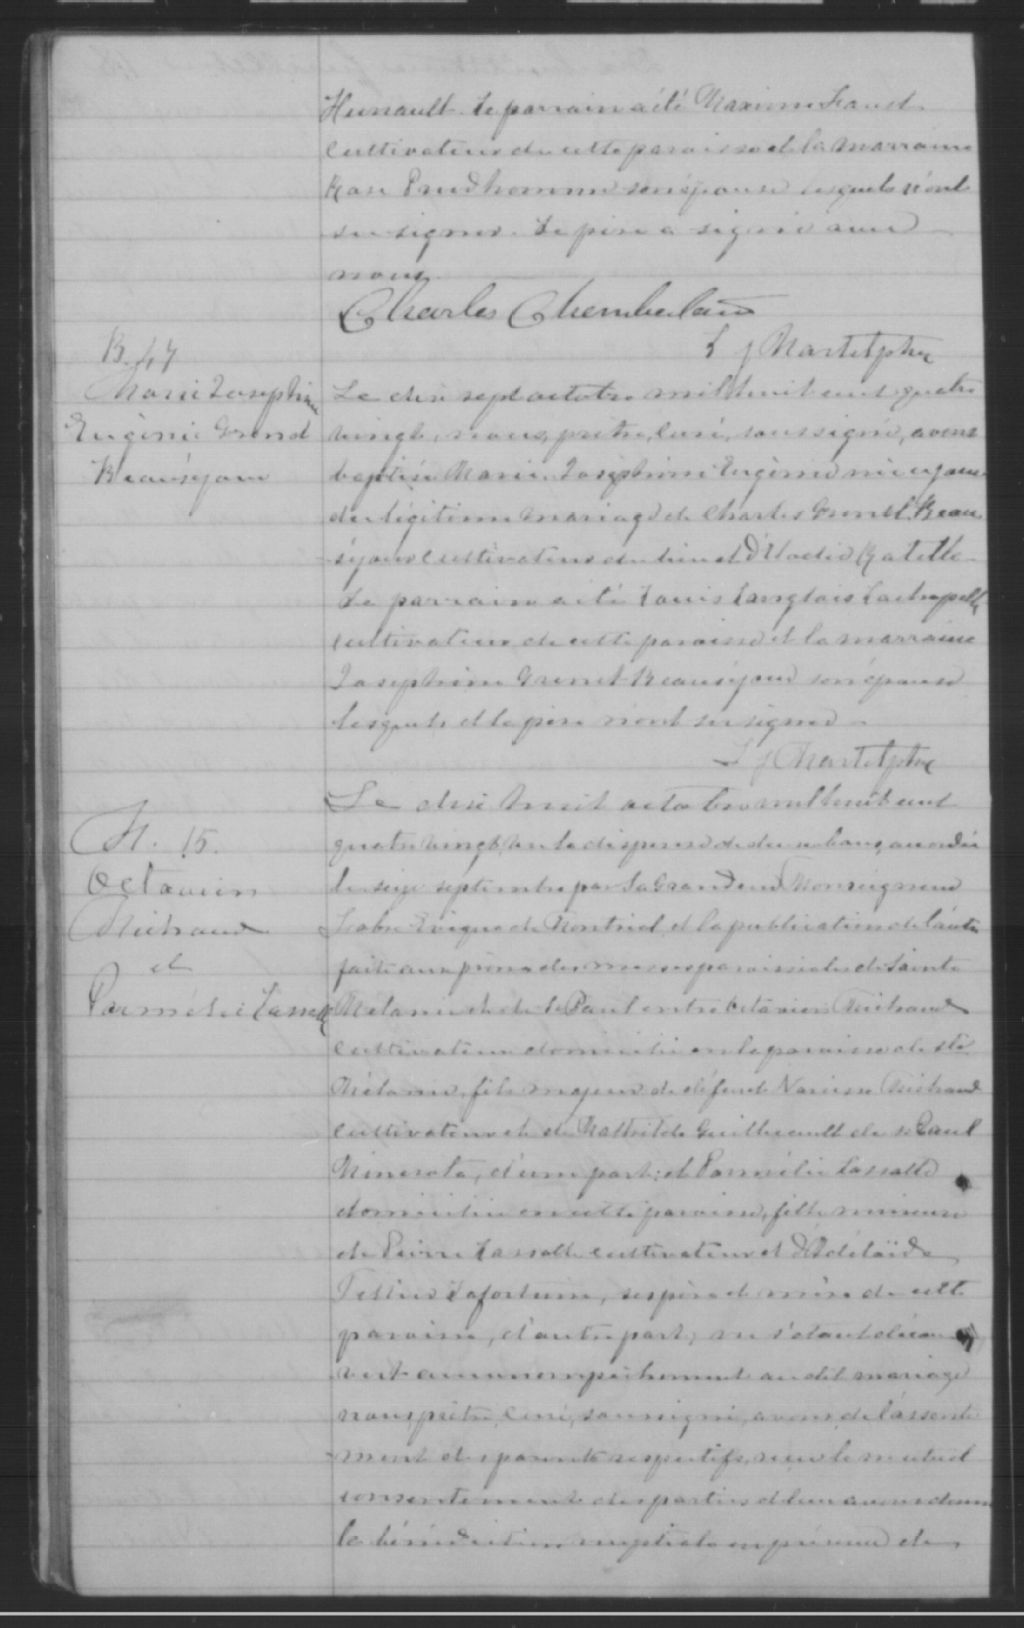 Henault. Le parrain a été Maxime Laust
cultivateur de cette paroisse et la marraine
Rose Prudhomme son épouse lesquels n'ont
su signer. Le père a signé avec
nous.
Charles Chemberland
B. 47
Marie Josephine
Eugénie Grenel
Beauséjour
Le dix sept octobre mil huit cent quatre
vingt, nous, prêtre, curé, soussigné, avons
baptisé Marie Joséphine Eugénie née ce jour
du légitime mariage de Charles Grenel Beau
séjour cultivateur du lieu et d'Elodie Ratelle
Le parrain a été Louis Langlois Lachapelle
cultivateur de cette paroisse et la marraine
Josephine Grenel Beauséjour son épouse
lesquels et le père n'ont su signer
M. 15.
Octavien
Michaud
et
Parmélie Lasalle
Le dix huit octobre mil huit cent
quatre vingt, vu la dispense de deux bans accordée
le seize septembre par Sa Grandeur Monseigneur
Fabre Evêque de Montréal et la publication de l'autre
faite aux prônes des messes paroissiales de Sainte
Mélanie et de St Paul entre Octavien Michaud
cultivateur domicilié en la paroisse de Ste
Mélanie, fils majeur de défunt Narcisse Michaud
cultivateur et de Mathilde Guilbeault de St Paul
Minesota, d'une part; et Parmélie Lassalle
domiciliée en cette paroisse, fille mineure
de Pierre Lassalle cultivateur et d'Adélaïde
Tellier Lafortune, ses père et mère de cette
paroisse, d'autre part; ne s'étant décou
vert aucun empêchement au dit mariage
nous prêtre, curé, soussigné, avons, de l'assenti
ment des parents respectifs, reçu le mutuel
consentement des parties et leur avons donné
la bénédiction nuptiale en présence de